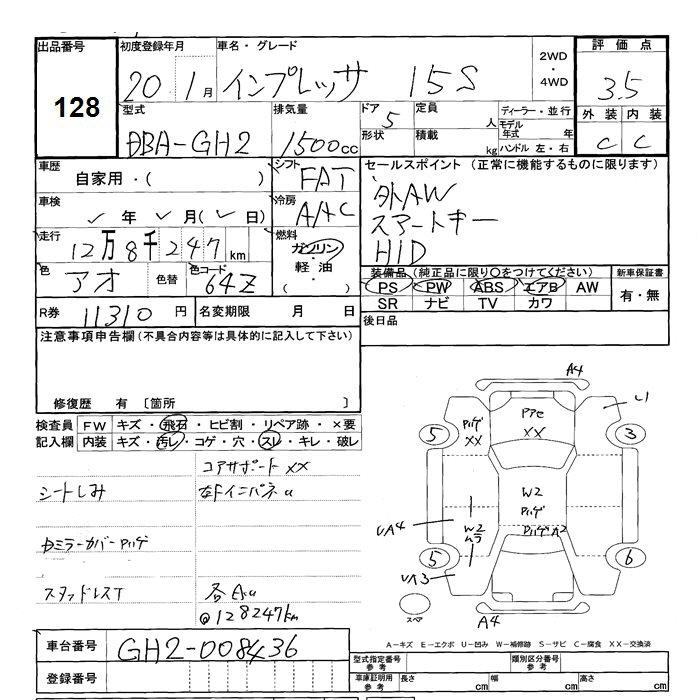 出品番号 初度登録年月 車名・グレード 2WD・4WD 評価点
128 20 1月 インプレッサ 15S 3.5
型式 排気量 ドア 定員 ディーラー・並行 外装 内装
DBA-GH2 1500cc 5 人 モデル年式 年 C C
形状 積載 kg ハンドル 左・右
車歴 自家用・( ) シフト FAT セールスポイント (正常に機能するものに限ります)
車検 年 月( 日) 冷房 AAC 外AW
スマートキー
HID
走行 12万8千247km 燃料 ガソリン・軽油・( )
色 アオ 色替 色コード 64Z
装備品(純正品に限り○をつけてください) 新車保証書
PS PW ABS エアB AW 有・無
SR ナビ TV カワ
R券 11310円 名変期限 月 日 後日品
注意事項申告欄(不具合内容等は具体的に記入して下さい)
修復歴 有 〔箇所 〕
検査員記入欄 FW キズ・飛石・ヒビ割・リペア跡・×要
内装 キズ・汚レ・コゲ・穴・スレ・キレ・破レ
コアサポート XX
シートしみ
ミラーカバー Pハゲ
スタッドレスT
@128247km
A4
U1
Pハゲ XX
XX
5
3
W2
Pハゲ
UA4
W2
Pハゲ A2
5
6
UA3
スペア
A4
車台番号 GH2-008436
登録番号
A－キズ E－エクボ U－凹み W－補修跡 S－サビ C－腐食 XX－交換済
型式指定番号 参考 類別区分番号 参考
車庫証明用 参考 長さ cm 幅 cm 高さ cm